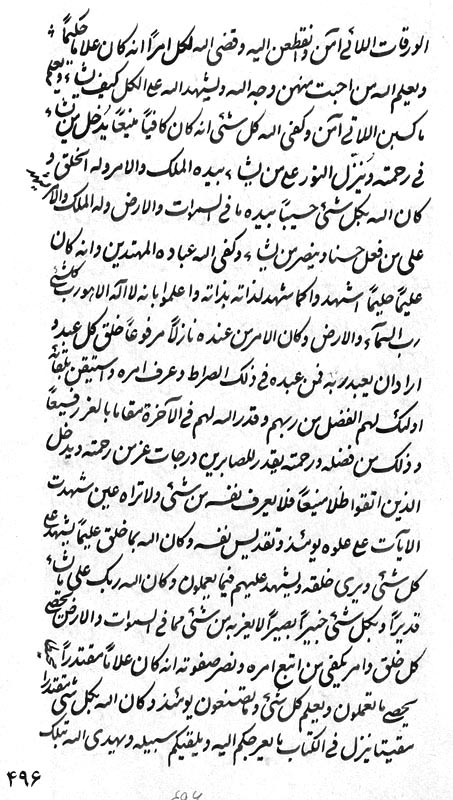 الورقات اللاتي امن و انقطعن اليه و قضى الله لكل امراً انه كان علاماً حكيماً
و يعلم الله من احبت منهن وجه الله و ليشهد الله على الكل كيف يشاء و يعلم
ما كسبن اللاتي امن و كفى الله كل شئ انه كان كافياً منيعاً يدخل من يشاء
في رحمته و ينزل النور على من يشاء بيده الملك و الامر و له الخلق و
كان الله بكل شئ حسيباً بيده ما في السموات و الارض و له الملك و الامر
على من فعل حسنا و ينصر من يشاء و كفى الله عباده المهتدين و انه كان
عليماً حليماً اشهدوا كما شهد لذاته بذاته و اعلموا بانه لا اله الا هو رب كل شئ
رب السماء و الارض و كان الامر من عنده نازلاً مرفوعاً خلق كل عبد و
اراد ان يعبد ربه فمن عبده في ذلك الصراط و عرف امره و استيقن بلقائه
اولئك لهم الفضل من ربهم و قدر الله لهم في الآخرة مقاما بالعز رفيعاً
و ذلك من فضله و رحمته يقدر للصابرين درجات عز من رحمته و يدخل
الذين اتقوا ظلا منيعاً فلا يعرف نفسه من شئ و لا تراه عين شهدت
الآيات على علوه يومئذ و تقديس نفسه و كان الله بما خلق عليماً يشهد على
كل شئ و يرى خلقه و ليشهد عليهم فيما يعملون و كان الله ربك على ما يشاء
قديراً و بكل شئ خبيراً بصيراً لا يعزب من شئ مما في السموات و الارض يحصي
كل خلق و امر يكفي من اتبع امره و نصر صفوته انه كان علاماً مقتدراً
يحصي ما تعملون و يعلم كل شئ و ما تصنعون يومئذ و كان الله بكل شئ مقتدرا
مقيتا ينزل في الكتاب ما يعرجكم اليه و يلقيكم سبيله و يهدي الله بتلك
۴۹۶